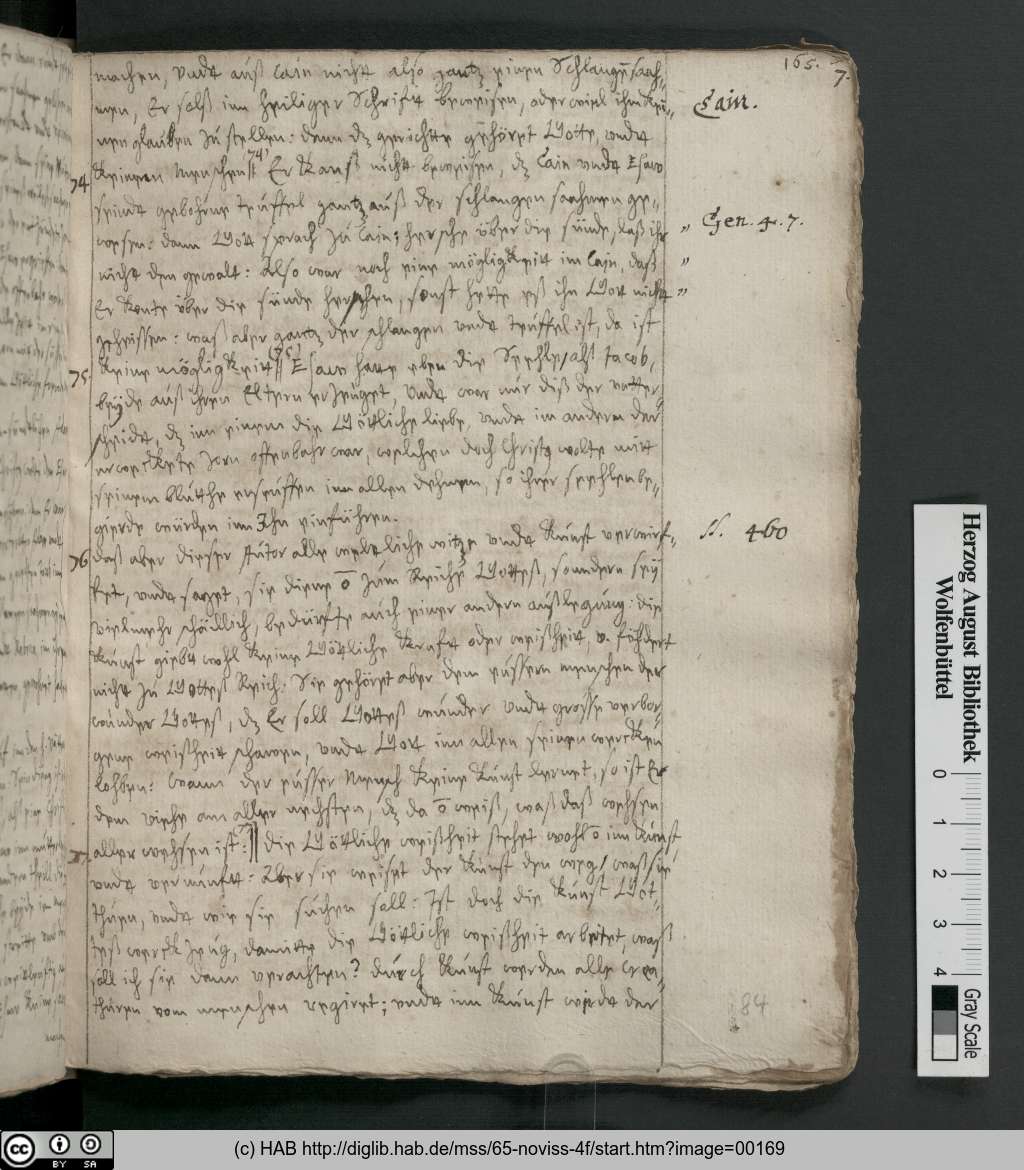 165.
7.
machen, undt auß Cain nicht also gantz einen Schlangen saah-
men, Er selß inn heiliger Schrifft beweisen, oder wiel ihm kei-
nen glauben zu stellen: dann dz gerichtte gehöret Gotte, undt
Cain.
74 keinem Menschen || 74 Er kanß nicht beweisen, dz Cain undt Esaw
seindt gebohrne teuffel gantz auß der schlangen saahmen ge-
wesen: dann Gott sprach zu Cain; hersche über die sünde, laß ihr " Gen. 4. 7.
nicht den gewalt: Also war noch eine mögligkeit im Cain, daß "
Er konte über die sünde herschen, sonst hette eß ihn Gott nicht "
geheissen: waß aber gantz der schlangen undt teuffel ist, da ist
75 keine mögligkeit || (75) Esaw hatte eben die Seehle, alß Jacob,
beyde auß ihren Eltern erzeuget, undt war nur diß der unter-
scheidt, dz inn einem die Göttliche liebe, undt im andern der
erweckte zorn offenbahr war, welchen doch Christ9 wolte mit
seinem bluthe erseuffen inn allen dehnen, so ihrer seehlen be-
gierde würden inn Ihn einführen.
76 daß aber dieser Autor alle weltliche witze undt Kunst verwirf-
S. 460
fet, undt saget, sie diene ō zum Reiche Gotteß, sondern sey
vielmehr schädlich, bedürffte auch einer andern außlegung: die
Kunst giebt wohl keine Göttliche krafft oder weißheit, v. föhdert
nicht zu Gotteß Reich: Sie gehöret aber dem eüssern menschen der
wunder Gotteß, dz Er soll Gotteß wunder undt grosse verbor-
gene weißheit schawen, undt Gott inn allen seinen wercken
lohben: Wann der eüsser Mensch keine Kunst lernet, so ist Er
dem viehe am aller nechsten, dz da ō weiß, waß daß wehsen
aller wehsen ist: || die Göttliche weißheit stehet wohl ō im Kunst
undt vernunfft: Aber sie weiset der Kunst den weg, waß sie
thuen, undt wie sie suchen soll: Ist doch die Kunst Got-
teß werckzeug, damitte die Göttliche weißheit arbeitet, waß
soll ich sie dann verachten? durch Kunst werden alle Crea-
thuren vom menschen regiret; undt inn Kunst wirdt der
84
Herzog August Bibliothek
Wolfenbüttel
0 1 2 3 4
Gray Scale
cc BY SA
(c) HAB http://diglib.hab.de/mss/65-noviss-4f/start.htm?image=00169